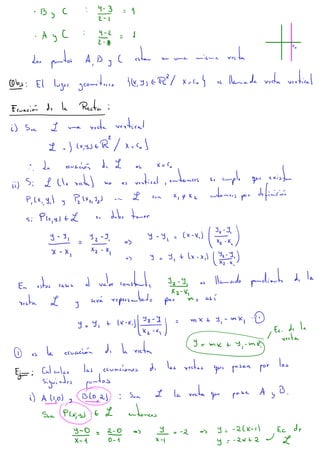 · B y C : (4-3)/(2-1) = 1
· A y C : (4-2)/(2-0) = 1
Los puntos A, B y C estan en una misma recta
x₀
Obs: El lugar geometrico {(x,y) ∈ ℝ² / x = c₀} es llamado recta vertical
Ecuación de la Recta:
i) Sea L una recta vertical
L = {(x,y) ∈ ℝ² / x = c₀}
∴ La ecuación de L es x = c₀
ii) Si L (la recta) no es vertical, entonces se cumple que existen
P₁(x₁,y₁) y P₂(x₂,y₂) en L con x₁ ≠ x₂ entonces por definición
si P(x,y) ∈ L se debe tener
(y-y₁)/(x-x₁) = (y₂-y₁)/(x₂-x₁) ⇒ y-y₁ = (x-x₁) ((y₂-y₁)/(x₂-x₁))
⇒ y = y₁ + (x-x₁) ((y₂-y₁)/(x₂-x₁))
En este caso el valor constante (y₂-y₁)/(x₂-x₁) es llamado pendiente de la
recta L y será representado por m, así
y = y₁ + (x-x₁) ((y₂-y₁)/(x₂-x₁)) = mx + y₁ - mx₁ ...①
Ec. de la recta
① es la ecuación de la recta
y = mx + y₁ - mx₁
Ej: Calcular las ecuaciones de las rectas que pasan por los
siguientes puntos
i) A(1,0) y B(0,2) : Sea L la recta que pasa A y B.
Sea P(x,y) ∈ L entonces
(y-0)/(x-1) = (2-0)/(0-1) ⇒ y/(x-1) = -2 ⇒ y = -2(x-1) Ec de
y = -2x+2 ✓ L